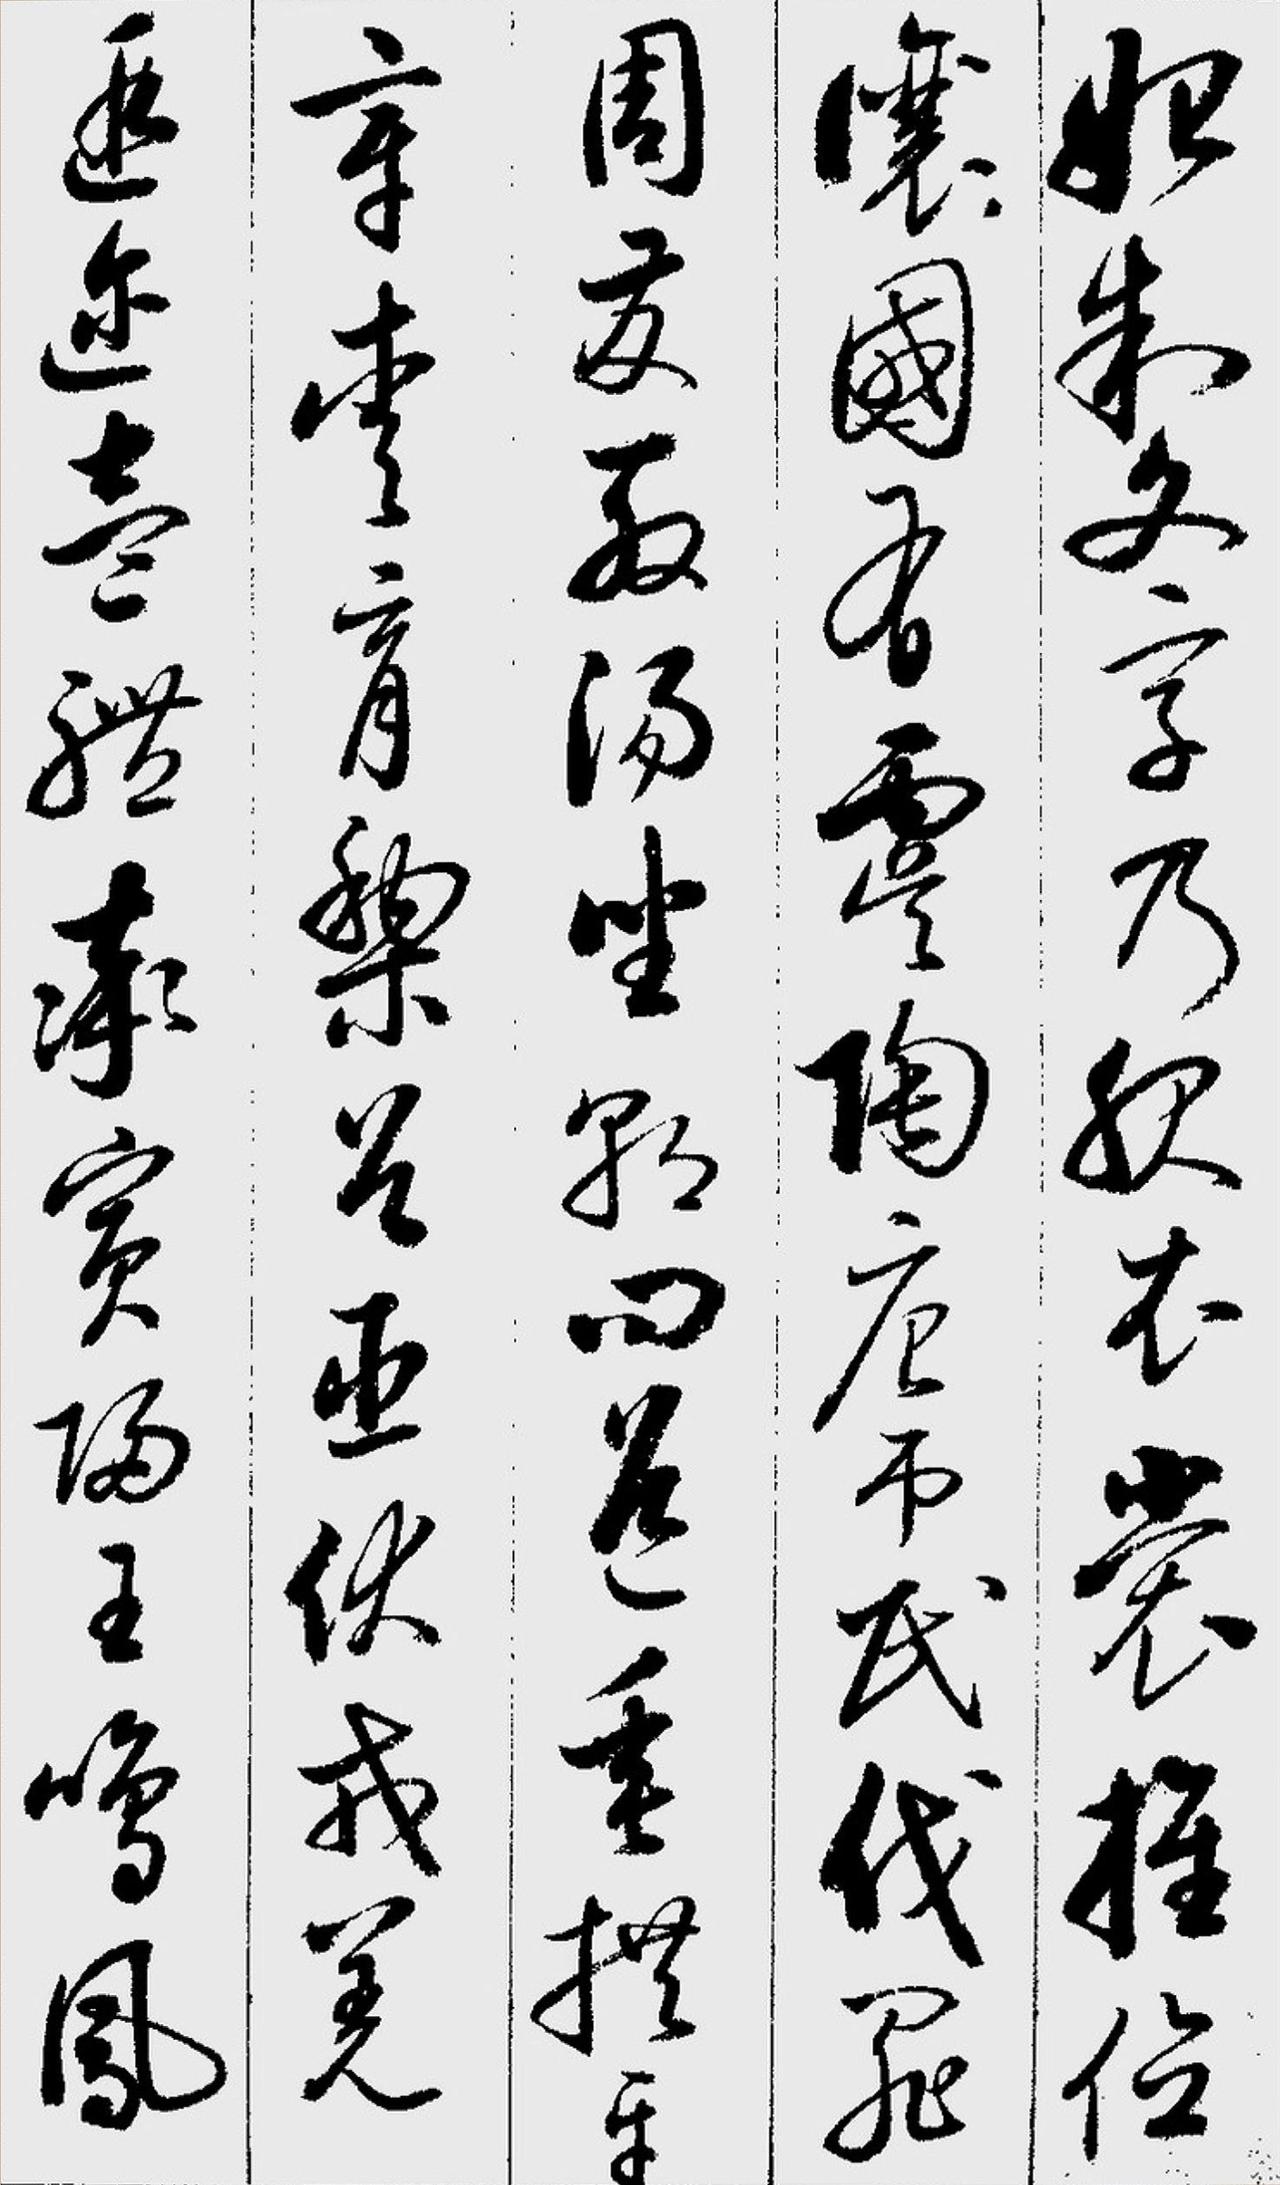 始制文字乃服衣裳推位
讓國有虞陶唐弔民伐罪
周發殷湯坐朝問道垂拱平
章愛育黎首臣伏戎羌
遐迩壹體率賓歸王鳴鳳